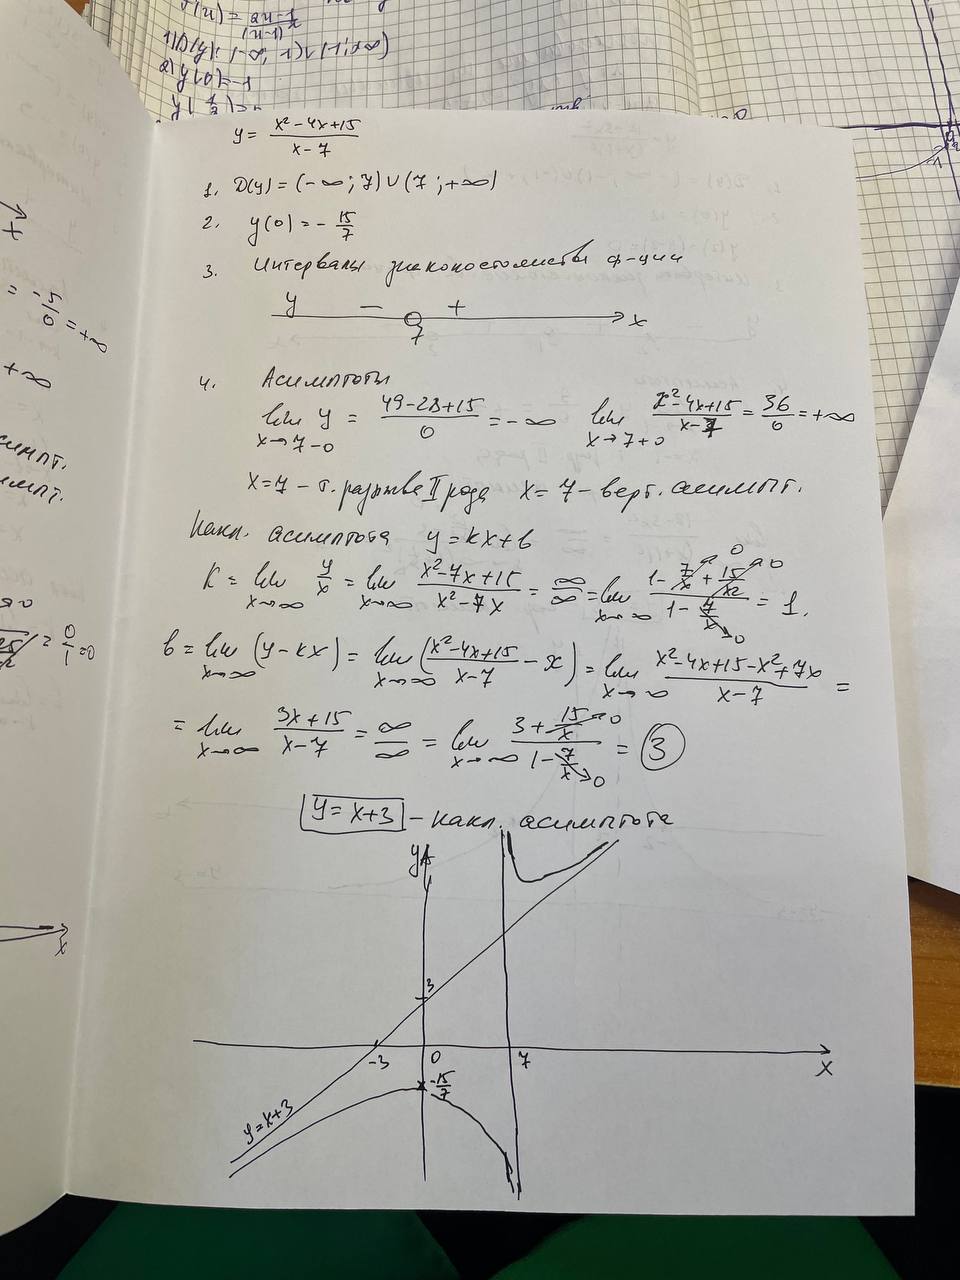 f(x) = (2x-1)/(x-1)²
1) D(y): (-∞; 1)∪(1; +∞)
2) y(0) = -1
y = (x²-4x+15)/(x-7)
1. D(y) = (-∞; 7)∪(7; +∞)
2. y(0) = -15/7
3. Интервалы знакопостоянства ф-ции
y - + x
7
4. Асимптоты
lim y = (49-28+15)/0 = -∞ lim (x²-4x+15)/(x-7) = 36/0 = +∞
x→7-0 x→7+0
x=7 - т. разрыва II рода x=7 - верт. асимпт.
Накл. асимптота y = kx+b
k = lim y/x = lim (x²-7x+15)/(x²-7x) = ∞/∞ = lim (1-7/x+15/x²)/(1-7/x) = 1.
x→∞ x→∞ x→∞
b = lim (y-kx) = lim ((x²-4x+15)/(x-7) - x) = lim (x²-4x+15-x²+7x)/(x-7) =
x→∞ x→∞ x→∞
= lim (3x+15)/(x-7) = ∞/∞ = lim (3+15/x)/(1-7/x) = 3
x→∞ x→∞
y = x+3 - накл. асимптота
y
3
-3 0 7 x
-15/7
y=x+3
x
= -5/0 = +∞
+∞
симпт.
= 0/1 = 0
x